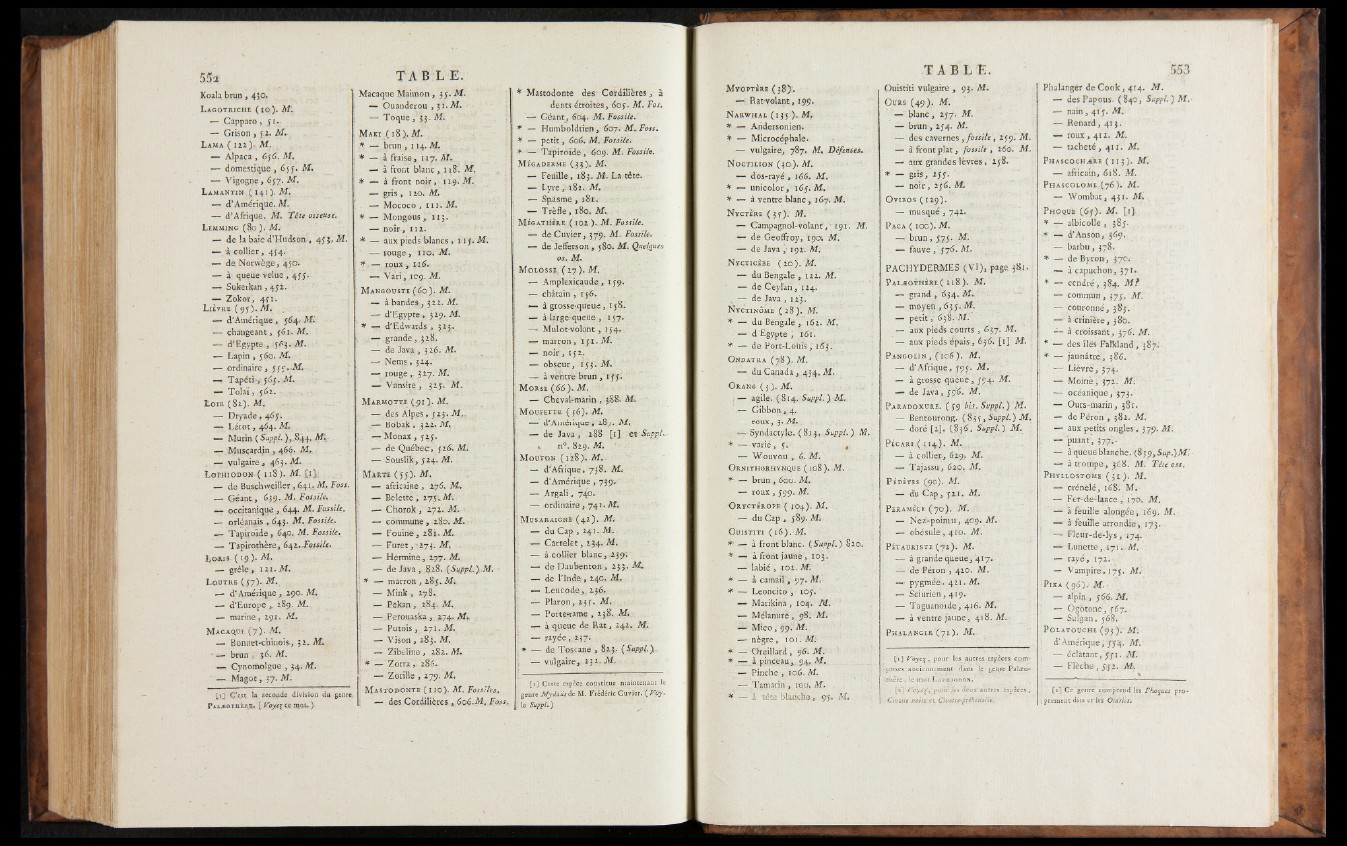 552
TABLE.
Koala brun, 430.
LAGOTRICHE (10). M.
— Capparo, 51.
— Grison, 52. M.
LAMA (122). M.
— Alpaca, 656. M.
— domestique, 655. M.
— Vigogne, 657. M.
LAMANTIN (141). M.
— d'Amérique. M.
— d'Afrique. M. Tête osseuse.
LEMMING (80). M.
— de la baie d'Hudson, 453. M.
— à collier, 454.
— de Norwège, 450.
— à queue velue, 455.
— Sukerkan, 452.
— Zokor, 451.
LIÈVRE (95). M.
— d'Amérique, 564. M.
— changeant, 561. M.
— d'Egypte, 563. M.
— Lapin, 560. M.
— ordinaire, 555. M.
— Tapéti, 565. M.
— Tolaï, 562.
LOIR (82). M.
— Dryade, 465.
— Lérot, 464. M.
— Murin (Suppl.), 843. M.
— Muscardin, 466. M.
— vulgaire, 463. M.
LOPHIODON (118). M. [1]
— de Buschweiller, 641. M. Foss.
— Géant, 639. M. Fossile.
— occitanique, 644. M. Fossile.
— orléanais, 643. M. Fossile.
— Tapiroïde, 640. M. Fossile.
— Tapirothère, 642. Fossile.
LORIS (19). M.
— grêle, 121. M.
LOUTRE (57). M.
— d'Amérique, 290. M.
— d'Europe, 289. M.
— marine, 291. M.
MACAQUE (7). M.
— Bonnet-chinois, 32. M.
— brun, 36. M.
— Cynomolgue, 34. M.
— Magot, 37. M.
[1] C'est la seconde division du genre
PALÆOTHÈRE. (Voyez ce mot.)
Macaque Maimon, 35. M.
— Ouanderou, 31. M.
— Toque, 33. M.
MAKI (18). M.
* — brun, 114. M.
* — à fraise, 117. M.
— à front blanc, 118. M.
* — à front noir, 119. M.
— gris, 120. M.
— Mococo, 111. M.
* — Mongous, 113.
— noir, 112.
* — aux pieds blancs, 115. M.
— rouge, 110. M.
* — roux, 116.
— Vari, 109. M.
MANGOUSTE (60). M.
— à bandes, 322. M.
— d'Egypte, 329. M.
* — d'Edwards, 323.
— grande, 328.
— de Java, 326. M.
— Nems, 324.
— rouge, 327. M.
— Vansire, 325. M.
MARMOTTE (91). M.
— des Alpes, 523. M.
— Bobak, 522. M.
— Monax, 525.
— de Québec, 526. M.
— Souslik, 524. M.
MARTE (55). M.
— africaine, 276. M.
— Belette, 275. M.
— Chorok, 272. M.
— commune, 280. M.
— Fouine, 281. M.
— Furet, 273. M.
— Hermine, 277. M.
— de Java, 828. (Suppl.) M.
* — marron, 285. M.
— Mink, 278.
— Pekan, 284. M.
— Perouaska, 274. M.
— Putois, 271. M.
— Vison, 283. M.
— Zibeline, 282. M.
* — Zorra, 286.
— Zorille, 279. M.
MASTODONTE (110). M. Fossiles.
— des Cordilières, 606. M. Foss.
* Mastodonte des Cordilières, à
dents étroites, 605. M. Fos.
— Géant, 604. M. Fossile.
* — Humboldtien, 607. M. Foss.
* — petit, 606. M. Fossile.
* — Tapiroïde, 609. M. Fossile.
MÉGADERME (33). M.
— Feuille, 183. M. La tête.
— Lyre, 182. M.
— Spasme, 181.
— Trèfle, 180. M.
MÉGATHÈRE (102). M. Fossile.
— de Cuvier, 379. M. Fossile.
— de Jefferson, 580. M. Quelques
os. M.
MOLOSSE (27). M.
— Amplexicaude, 159.
— châtain, 156.
— à grosse queue, 158.
— à large queue, 157.
— Mulot-volant, 154.
— marron, 151. M.
— noir, 152.
— obscur, 153. M.
— à ventre brun, 155.
MORSE (66). M.
— Cheval-marin, 388. M.
MOUFETTE (56). M.
— d'Amérique, 287. M.
— de Java, 288 [1] et Suppl.
n°. 829. M.
MOUTON (128). M.
— d'Afrique, 738. M.
— d'Amérique, 739.
— Argali, 740.
— ordinaire, 741. M.
MUSARAIGNE (42). M.
— du Cap, 241. M.
— Carrelet, 234. M.
— à collier blanc, 239.
— de Daubenton, 233. M.
— de l'Inde, 240. M.
— Leucode, 236.
— Plaron, 235. M.
— Porte-rame, 238. M.
— à queue de Rat, 242. M.
— rayée, 237.
* — de Toscane, 823. (Suppl.)
— vulgaire, 232. M.
[1] Cette espèce constitue maintenant le
genre Mydaüs de M. Frédéric Cuvier. (Voy.
le Suppl.)
TABLE.
553
MYOPTÈRE (38).
— Rat-volant, 199.
NARWHAL (135). M.
* — Andersonien.
* — Microcéphale.
— vulgaire, 787. M. Défenses.
NOCTILION (30). M.
— dos-rayé, 166. M.
* — unicolor, 165. M.
* — à ventre blanc, 167. M.
NYCTÈRE (35). M.
— Campagnol-volant, 191. M.
— de Geoffroy, 190. M.
— de Java, 192. M.
NYCTICÈBE (20). M.
— du Bengale, 122. M.
— de Ceylan, 124.
— de Java, 123.
NYCTINOME (28). M.
* — du Bengale, 162. M.
— d'Egypte, 161.
* — de Port-Louis, 163.
ONDATRA (78). M.
— du Canada, 434. M.
ORANG (3). M.
— agile. (814. Suppl.) M.
— Gibbon, 4.
— roux, 3. M.
— Syndactyle. (813. Suppl.) M.
* — varié, 5.
— Wouvou, 6. M.
ORNITHORHYNQUE (108). M.
* — brun, 600. M.
— roux, 599. M.
ORYCTÉROPE (104). M.
— du Cap, 589. M.
OUISTITI (16). M.
* — à front blanc. (Suppl.) 820.
* — à front jaune, 103.
— labié, 102. M.
* — à camail, 97. M.
* — Leoncito, 105.
— Marikina, 104. M.
— Mélanure, 98. M.
— Mico, 99. M.
— nègre, 101. M.
* — Oreillard, 96. M.
* — à pinceau, 94. M.
— Pinche, 106. M.
— Tamarin, 100. M.
* — à tête blanche, 95. M.
Ouistiti vulgaire, 93. M.
OURS (49). M.
* — blanc, 257. M.
— brun, 254. M.
— des cavernes, fossile, 259. M.
— à front plat, fossile, 260. M.
— aux grandes lèvres, 258.
* — gris, 255.
— noir, 256. M.
OVIBOS (129).
— musqué, 742.
PACA (100). M.
— brun, 575. M.
— fauve, 576. M.
PACHYDERMES (VI), page 381.
PALÆOTHÈRE (118). M.
— grand, 634. M.
— moyen, 635. M.
— petit, 638. M.
— aux pieds courts, 637. M.
— aux pieds épais, 636. [1] M.
PANGOLIN, (106). M.
— d'Afrique, 595. M.
— à grosse queue, 594. M.
— de Java, 596. M.
PARADOXURE. (59 bis. Suppl.) M.
— Benteurong. (835, Suppl.) M.
— doré [2]. (836, Suppl.) M.
PÉCARI (114). M.
— à collier, 629. M.
— Tajassu, 620. M.
PÉDÈTES (90). M.
— du Cap, 521. M.
PÉRAMÈLE (70). M.
— Nez-pointu, 409. M.
— obésule, 410. M.
PÉTAURISTE (72). M.
— à grande queue, 417.
— de Péron, 420. M.
— pygmée, 421. M.
— Sciurien, 419.
— Taguanoïde, 416. M.
— à ventre jaune, 418. M.
PHALANGER (71). M.
[1] Voyez, pour les autres espèces com-
prises anciennement dans le genre Palæo-
thère, le mot LOPHIODON.
Phalanger de Cook, 414. M.
— des Papous. (840, Suppl.) M.
— nain, 415. M.
— Renard, 413.
— roux, 412. M.
— tacheté, 411. M.
PHASCOCHÆRE (113). M.
— africain, 618. M.
PHASCOLOME (76). M.
— Wombat, 431. M.
PHOQUE (65). M. [1]
* — albicolle, 385.
* — d'Anson, 369.
— barbu, 378.
* — de Byron, 370.
— à capuchon, 371.
* — cendré, 384. M?
— commun, 375. M.
— couronné, 383.
— à crinière, 380.
— à croissant, 376. M.
* — des îles Falkland, 387.
* — jaunâtre, 386.
— Lièvre, 374.
— Moine, 372. M.
— océanique, 373.
— Ours-marin, 381.
— de Péron, 382. M.
— aux petits ongles, 379. M.
— puant, 377.
— à queue blanche. (839, Sup.) M.
— à trompe, 368. M. Tête oss.
PHYLLOSTOME (31). M.
— crénelé, 168. M.
— Fer-de-lance, 170. M.
— à feuille alongée, 169. M.
— à feuille arrondie, 173.
— Fleur-de-lys, 174.
— Lunette, 171. M.
— rayé, 172.
— Vampire, 175. M.
PIKA (96). M.
— alpin, 566. M.
— Ogotone, 567.
— Sulgan, 568.
POLATOUCHE (93). M.
d'Amérique, 554. M.
— éclatant, 551. M.
— Flèche, 552. M.
[1] Ce genre comprend les Phoques pro-
prement dits et les Otaries.